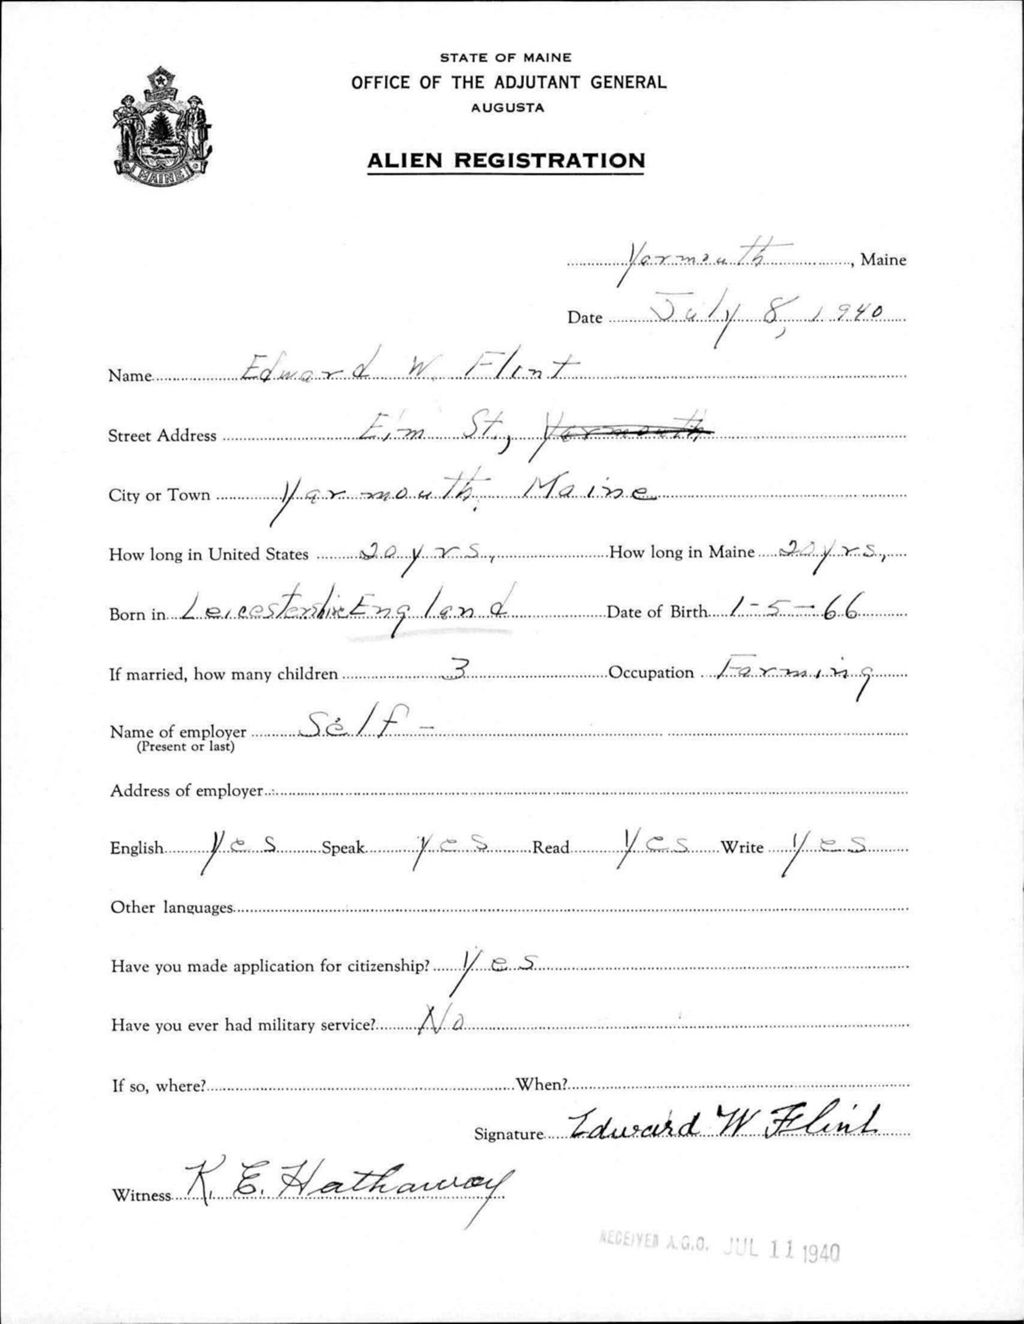 STATE OF MAINE
OFFICE OF THE ADJUTANT GENERAL
AUGUSTA
ALIEN REGISTRATION
MAINE
Yarmouth, Maine
Date July 8, 1940
Name Edward W. Flint
Street Address Elm St., Yarmouth
City or Town Yarmouth, Maine
How long in United States 20 yrs, How long in Maine 20 yrs,
Born in Leicestershire England Date of Birth 1-5-66
If married, how many children 3 Occupation Farming
Name of employer Self -
(Present or last)
Address of employer
English Yes Speak yes Read Yes Write Yes
Other languages
Have you made application for citizenship? Yes
Have you ever had military service? No
If so, where? When?
Signature Edward W Flint
Witness K. E. Hathaway
RECEIVED A.G.O. JUL 11 1940